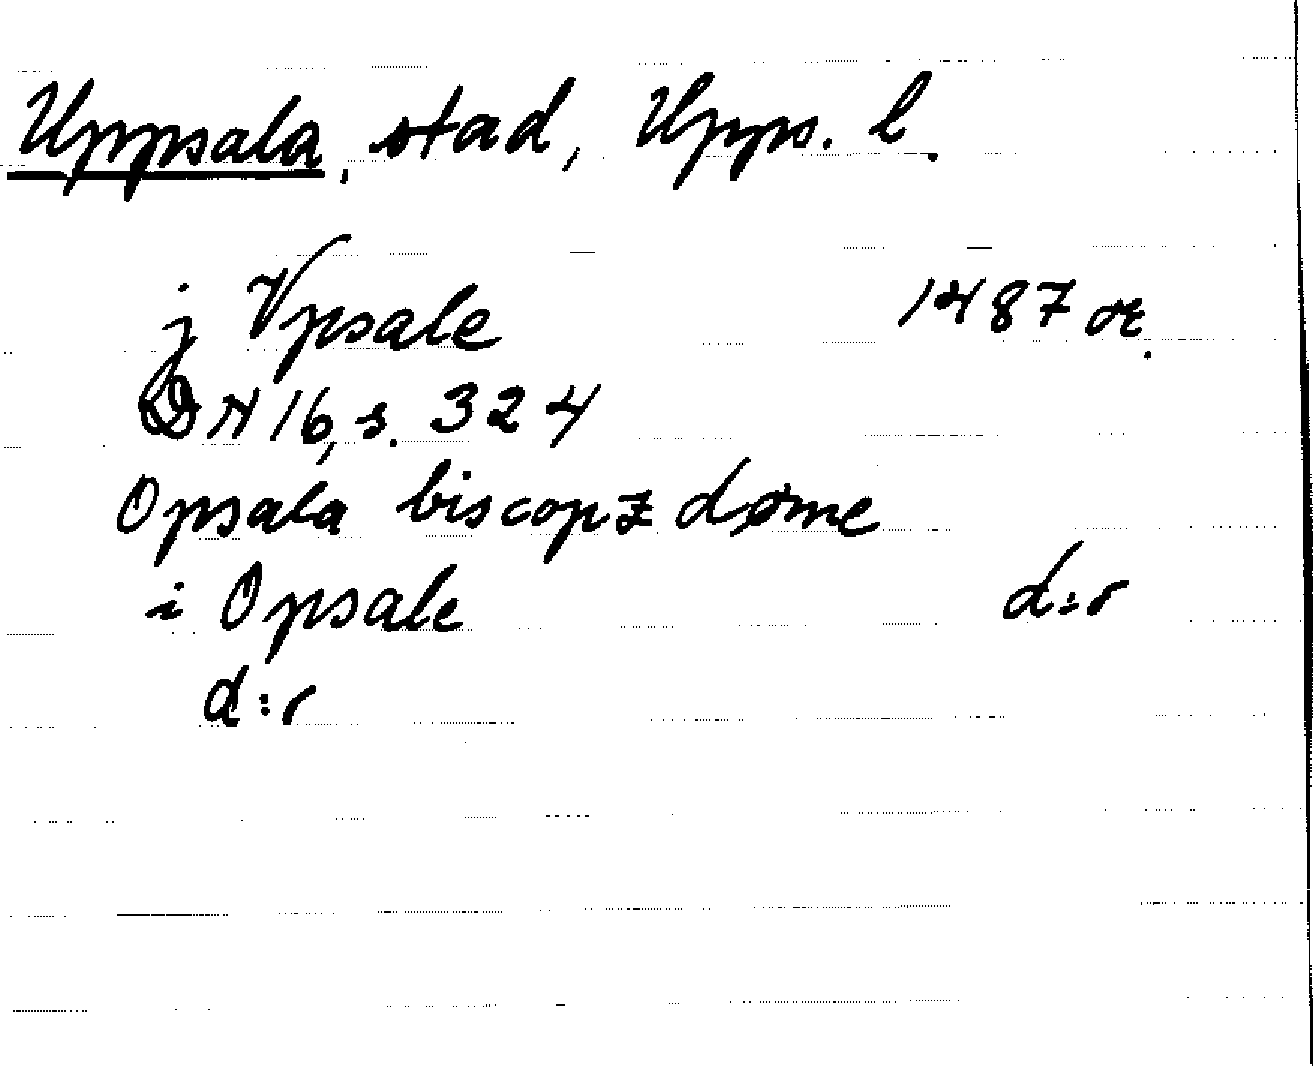 Uppsala, stad, Upps. l.
j Vpsale 1487 or.
DN 16, s. 324
Opsala biscopz døme
i Opsale d:r
d:r